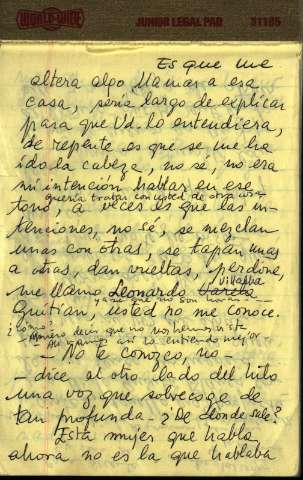 WORLD-WIDE JUNIOR LEGAL PAD 31185
Es que me
altera algo llamar a esa
casa, sería largo de explicar
para que Ud. lo entendiera,
de repente es que se me ha
ido la cabeza, no sé, no era
mi intención hablar en ese
quería tratar con usted de otra cosa
tono, a veces es que las in-
tenciones, no sé, se mezclan
unas con otras, se tapan unas
a otras, dan vueltas, perdone,
Villalba
me llamo Leonardo Varela
ya sé que no son horas
Quitián, usted no me conoce.
¿Cómo?
Quiero decir que no nos hemos visto
así lo entiendo mejor
— No te conozco, no —
— dice al otro lado del hilo
una voz que sobrecoge de
tan profunda — ¿De dónde sale?
Esta mujer que habla
ahora no es la que hablaba